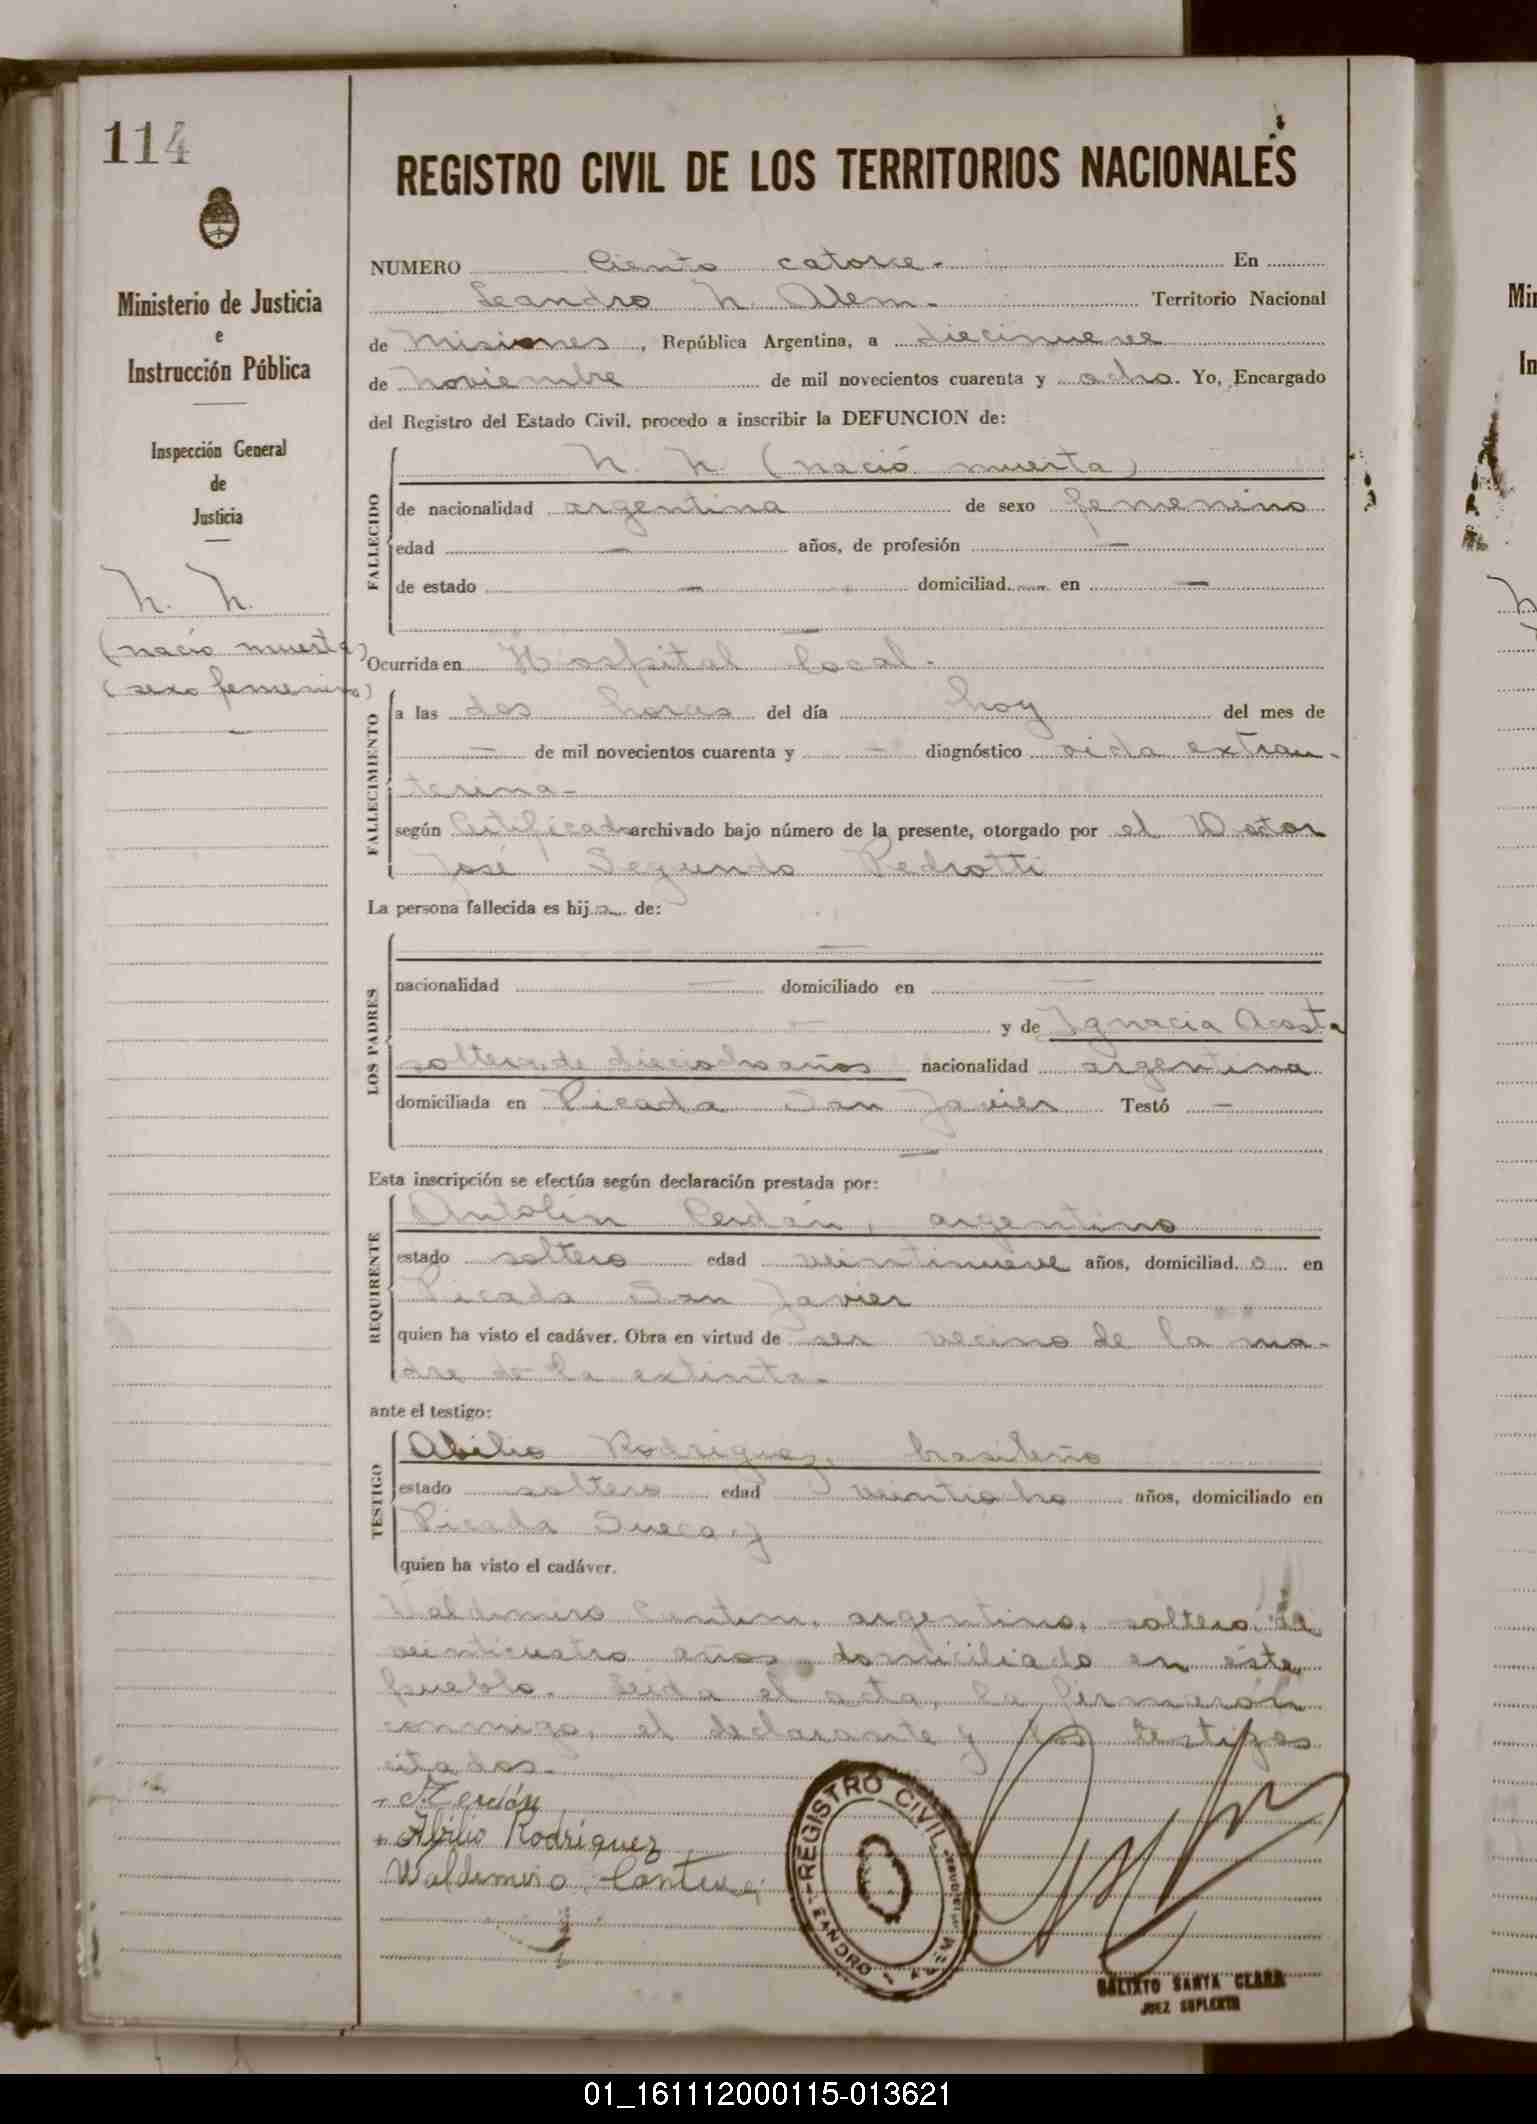 114
REGISTRO CIVIL DE LOS TERRITORIOS NACIONALES
Ministerio de Justicia
e
Instrucción Pública
Inspección General
de
Justicia
N. N.
(nació muerta)
(sexo femenino)
NUMERO Ciento catorce. En
Leandro N. Alem. Territorio Nacional
de Misiones, República Argentina, a diecinueve
de noviembre de mil novecientos cuarenta y ocho. Yo, Encargado
del Registro del Estado Civil, procedo a inscribir la DEFUNCION de:
FALLECIDO
N. N. (nació muerta)
de nacionalidad argentina de sexo femenino
edad — años, de profesión —
de estado — domiciliad en —
—
Ocurrida en Hospital local.
FALLECIMIENTO
a las dos horas del día hoy del mes de
— de mil novecientos cuarenta y — diagnóstico vida extrau-
terina-
según Certificado archivado bajo número de la presente, otorgado por el Doctor
José Segundo Pedrotti
La persona fallecida es hija de:
LOS PADRES
—
nacionalidad — domiciliado en —
— y de Ignacia Acosta
soltera, de dieciocho años nacionalidad argentina
domiciliada en Picada San Javier Testó —
—
Esta inscripción se efectúa según declaración prestada por:
REQUIRENTE
Antolín argentino
estado soltero edad veintinueve años, domiciliad o en
Picada San Javier
quien ha visto el cadáver. Obra en virtud de ser vecino de la ma-
dre de la extinta.
ante el testigo:
TESTIGO
Abilio Rodriguez, brasileño
estado soltero edad veintiocho años, domiciliado en
Picada Sueca y
quien ha visto el cadáver.
argentino, soltero, de
veinticuatro años domiciliado en éste
pueblo. Leida el acta, la firmarón
conmigo, el declarante y los testigos
citados.
Abilio Rodriguez
Waldimiro
REGISTRO CIVIL
CALIXTO SANTA CLARA
JUEZ SUPLENTE
01_161112000115-013621